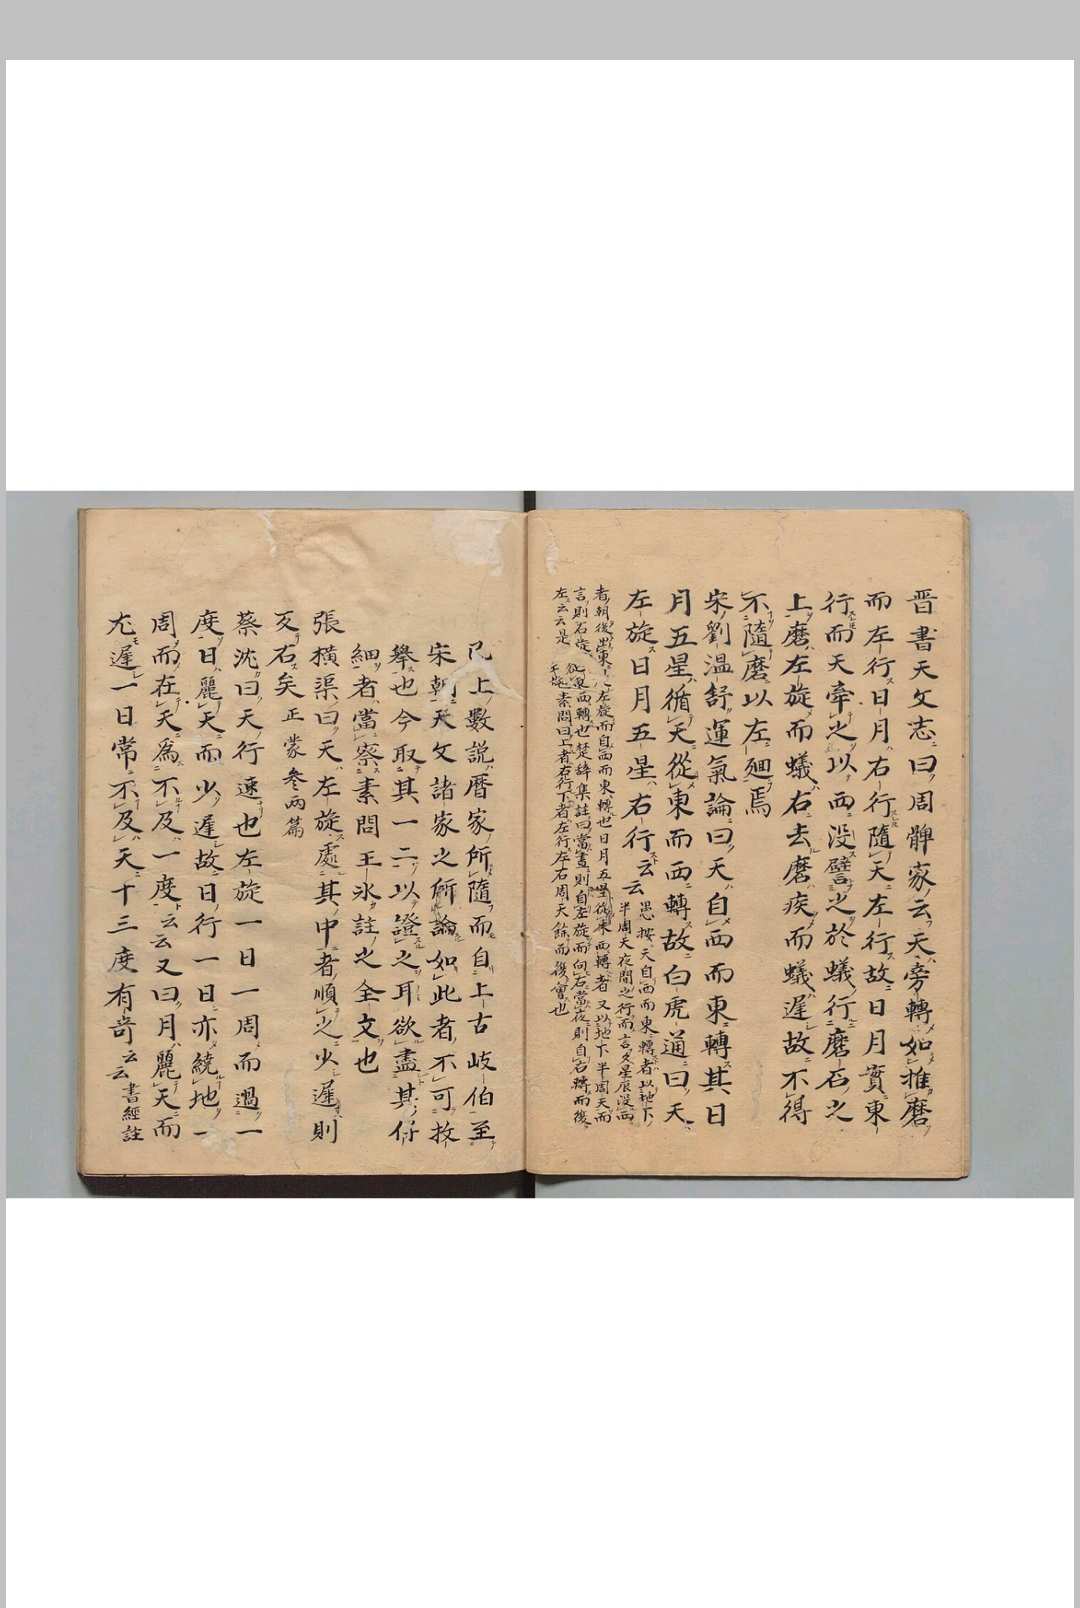 晋書天文志曰周髀家云天旁轉如推磨
而左行日月右行隨天左行故日月實東
行而天牽之以西没譬之於蟻行磨石之
上磨左旋而蟻右去磨疾而蟻遅故不得
不隨磨以左廻焉
宋劉温舒運氣論曰天自西而東轉其日
月五星循天從東而西轉故白虎通曰天
左旋日月五星右行云云
愚按天自西而東轉者以地下
半周天夜間之行而言夂星辰没西
者朝後出東左旋而自西而東轉也日月五星從東西轉者又以地下半周天而
言則右旋西轉也楚辞集註曰當晝則自左旋而向右當夜則自右轉而後
左云云是素問曰上者右行下者左行左右周天餘而後會也
已上數説暦家所隨而自上古岐伯至
宋朝天文諸家之所論如此者不可枚
舉也今取其一二以證之耳欲盡其仔
細者當察素問王氷註之全文也
張横渠曰天左旋處其中者順之少遅則
反右矣正蒙参兩篇
蔡沈曰天行速也左旋一日一周而過一
度日麗天而少遅故日行一日亦繞地一
周而在天為不及一度云云又曰月麗天而
尤遅一日常不及天十三度有奇云云書經註